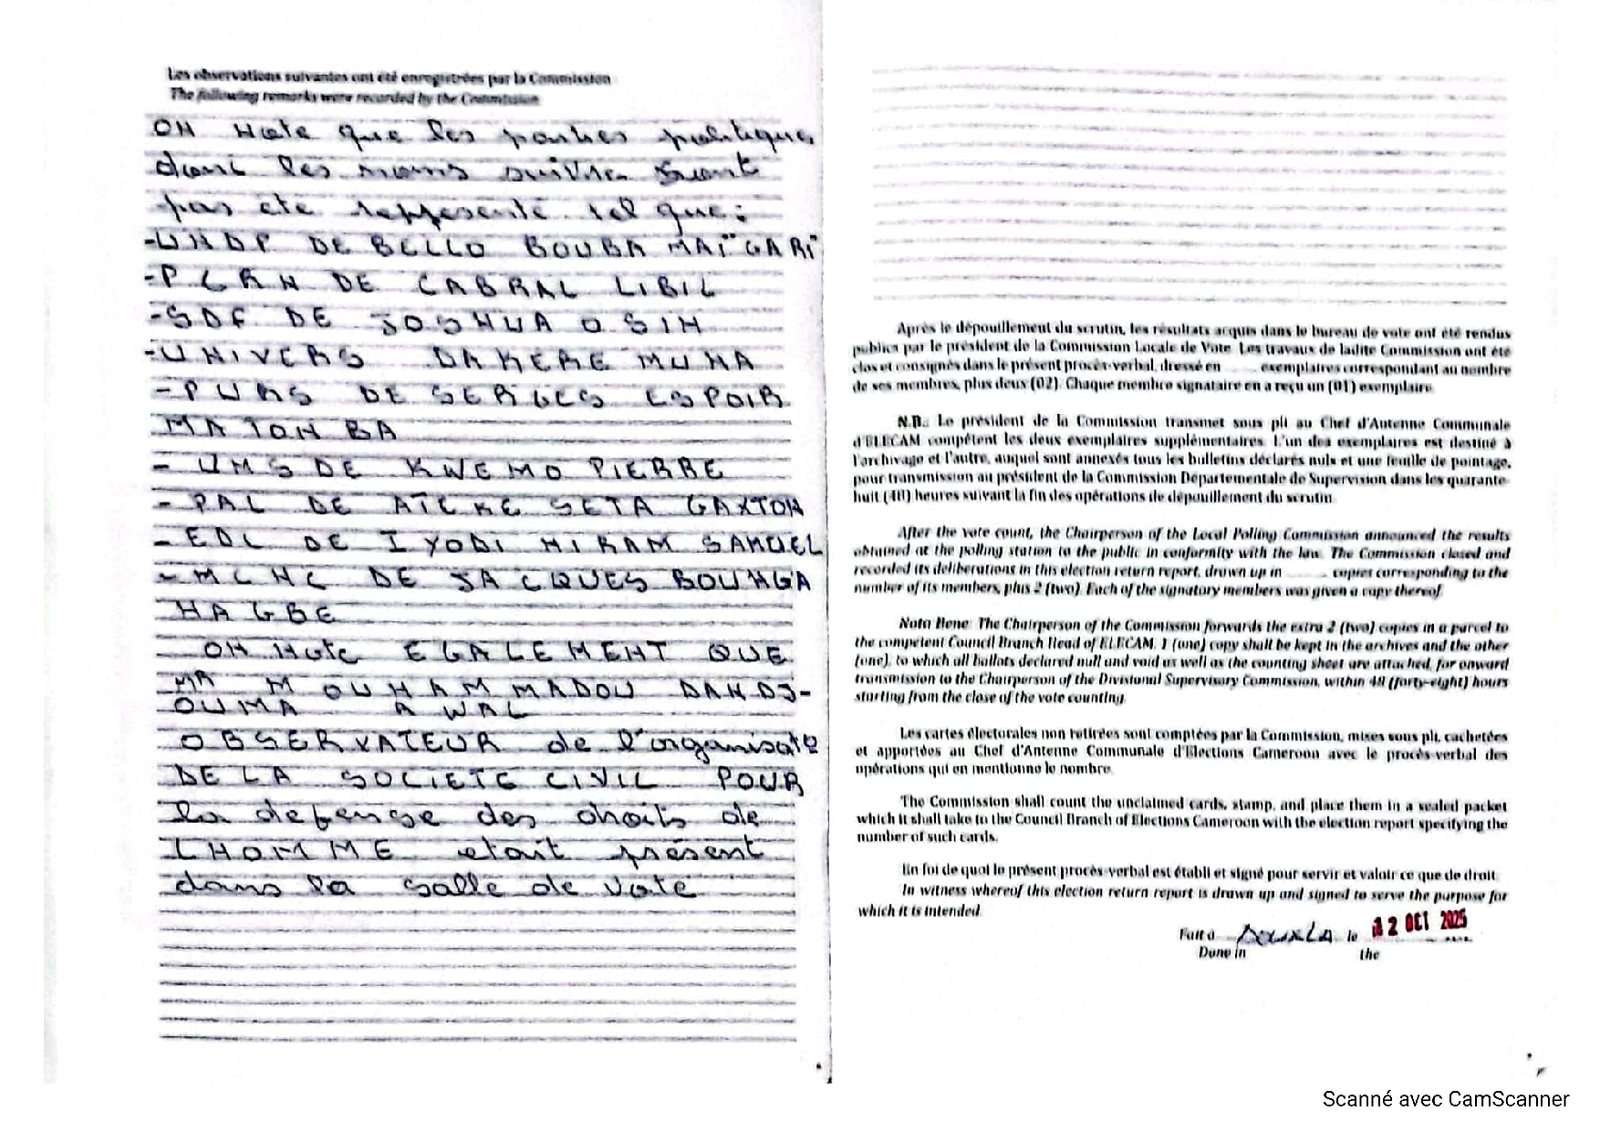 Les observations suivantes ont été enregistrées par la Commission
The following remarks were recorded by the Commission
ON Note que les parties politique
dont les noms suivre
pas ete représenté tel que:
-UNDP DE BELLO BOUBA MAÏGARI
-PCRN DE CABRAL LIBIL
-SDF DE JOSHUA OSIH
-UNIVERS DAKERE MUNA
-PURS DE SERGES ESPOIR
MATOMBA
- UMS DE KWEMO PIERRE
- PAL DE ATEKE SETA GAXTON
- EDC DE IYODI HIRAM SAMUEL
- MCNC DE JACQUES BOUNGA
HAGBE
ON Note EGALEMENT QUE
MR MOUHAMMADOU DANDJ-
OUMA AWAL
OBSERVATEUR de l'organisat°
DE LA SOCIETE CIVIL POUR
la defense des droits de
LHOMME etait présent
dans la salle de vote
Après le dépouillement du scrutin, les résultats acquis dans le bureau de vote ont été rendus
publics par le président de la Commission Locale de Vote. Les travaux de ladite Commission ont été
clos et consignés dans le présent procès-verbal, dressé en ........ exemplaires correspondant au nombre
de ses membres, plus deux (02). Chaque membre signataire en a reçu un (01) exemplaire.
N.B.: Le président de la Commission transmet sous pli au Chef d'Antenne Communale
d'ELECAM compétent les deux exemplaires supplémentaires. L'un des exemplaires est destiné à
l'archivage et l'autre, auquel sont annexés tous les bulletins déclarés nuls et une feuille de pointage,
pour transmission au président de la Commission Départementale de Supervision dans les quarante-
huit (48) heures suivant la fin des opérations de dépouillement du scrutin.
After the vote count, the Chairperson of the Local Polling Commission announced the results
obtained at the polling station to the public in conformity with the law. The Commission closed and
recorded its deliberations in this election return report, drawn up in ........ copies corresponding to the
number of its members, plus 2 (two). Each of the signatory members was given a copy thereof.
Nota Bene: The Chairperson of the Commission forwards the extra 2 (two) copies in a parcel to
the competent Council Branch Head of ELECAM. 1 (one) copy shall be kept in the archives and the other
(one), to which all ballots declared null and void as well as the counting sheet are attached, for onward
transmission to the Chairperson of the Divisional Supervisory Commission, within 48 (forty-eight) hours
starting from the close of the vote counting.
Les cartes électorales non retirées sont comptées par la Commission, mises sous pli, cachetées
et apportées au Chef d'Antenne Communale d'Elections Cameroon avec le procès-verbal des
opérations qui en mentionne le nombre.
The Commission shall count the unclaimed cards, stamp, and place them in a sealed packet
which it shall take to the Council Branch of Elections Cameroon with the election report specifying the
number of such cards.
En foi de quoi le présent procès-verbal est établi et signé pour servir et valoir ce que de droit.
In witness whereof this election return report is drawn up and signed to serve the purpose for
which it is intended.
Fait à DOUALA le 12 OCT 2025
Done in the
Scanné avec CamScanner